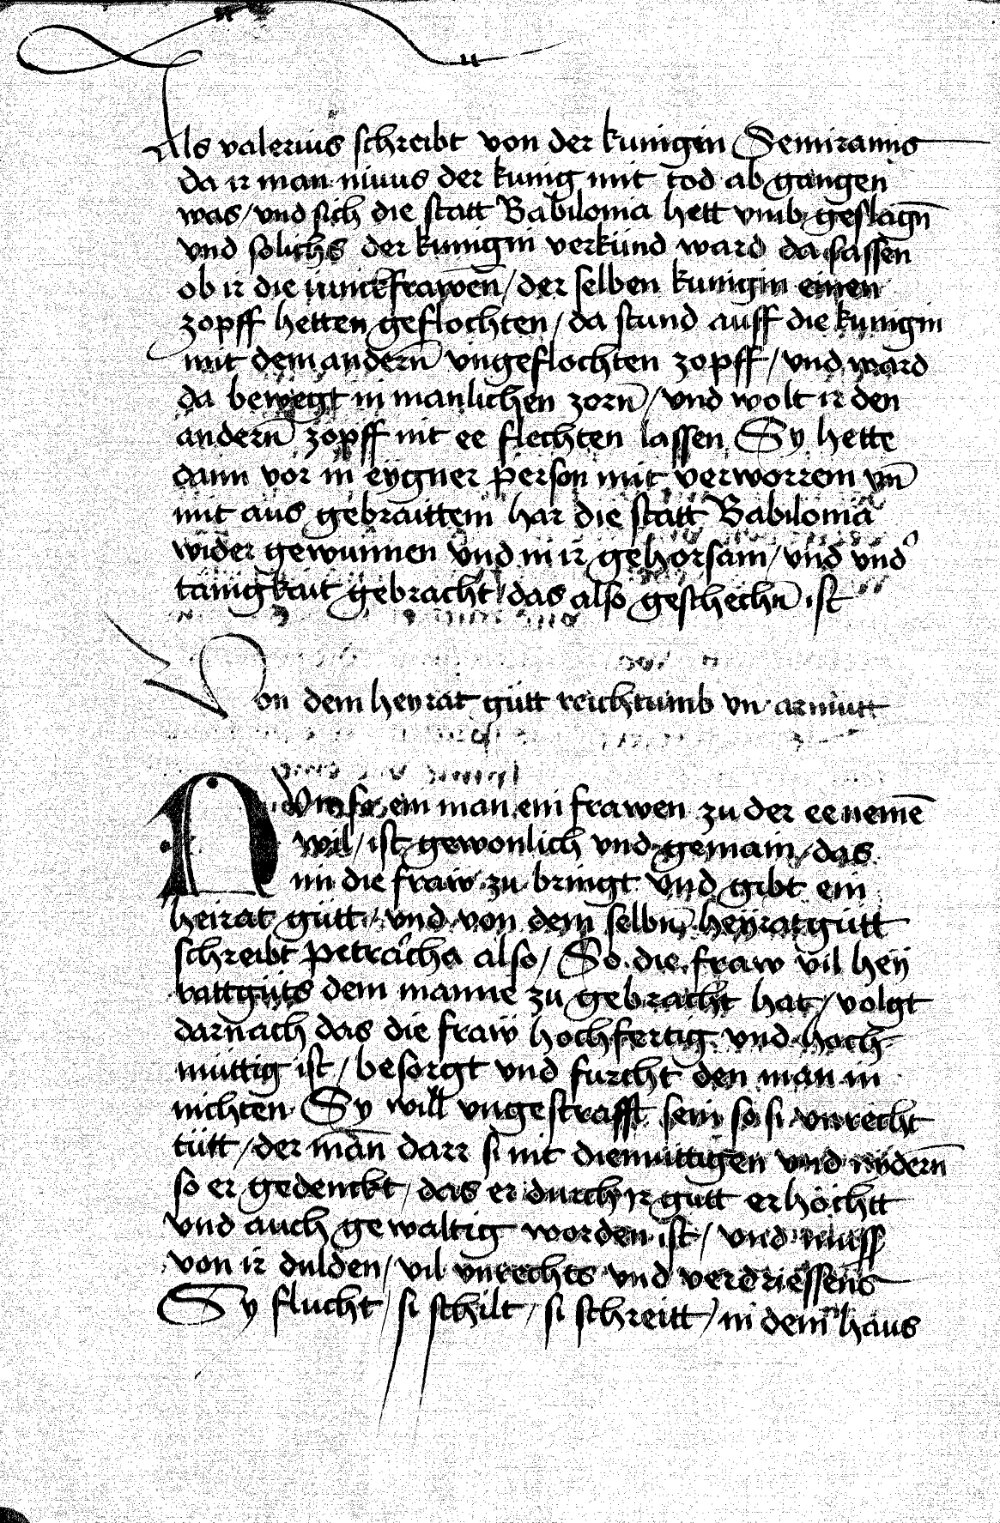 Als valerius schreibt von der kunigin Semiramis
da ir man ninus der kunig mit tod ab gangen
was / vnd sich die statt Babilonia hett vmb geslagn̄
vnd solichs der kunigin verkünd ward da sassen
ob ir die iunckfrawen̄ / der selben kunigin einen
zopff hetten geflochten / da stund auff die kunigin
mit dem andern̄ vngeflochten zopff / vnd ward
da bewegt in manlichen zorn̄ / vnd wolt ir den
andern̄ zopff nit ee flechten lassen Sy hette
dann vor in eygner person mit verworrem vn̄
mit aus gebraittem har die statt Babilonia
wider gewunnen vnd in ir gehorsam / vnd vnd᾽
tänigkait gebracht / das also geschechn̄ ist
Von dem heyrat gütt reichtumb vn armutt
So ein man ein frawen zu der ee nemē
wil / ist gewonlich vnd gemain / das
im die fraw zu bringt vnd gibt ein
heirat gütt / vnd von dem selbn̄ heyratgütt
schreibt petrarcha also / So die fraw vil hey
rattgüts dem manne zu gebracht hat / volgt
darnach das die fraw hochfertig vnd hoch
müttig ist / besorgt vnd furcht den man in
nichten Sy will vngestrafft sein so si vnrecht
tütt / der man̄ darr si nit diemüttigen vnd nydern̄
so er gedenckt / das er durch ir gutt erhöchtt
vnd auch gewaltig worden ist / vnd muss
von ir dulden / vil vnrechts vnd verdriessens
Sy flucht / si schilt / si schreitt / in dem haus